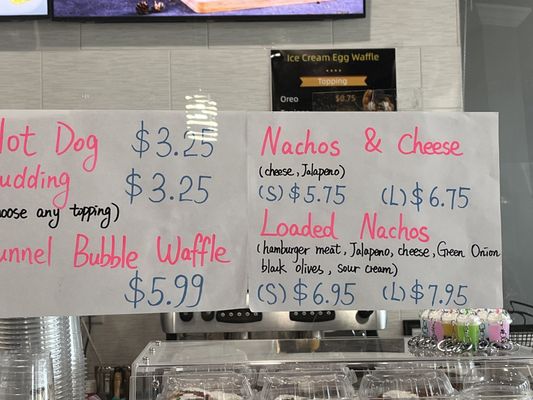 Ice Cream Egg Waffle
Topping
Oreo $0.75
Hot Dog $3.25
Pudding $3.25
(choose any topping)
Funnel Bubble Waffle
$5.99
Nachos & Cheese
(cheese, Jalapeno)
(S) $5.75 (L) $6.75
Loaded Nachos
(hamburger meat, Jalapeno, cheese, Green Onion
black olives, sour cream)
(S) $6.95 (L) $7.95